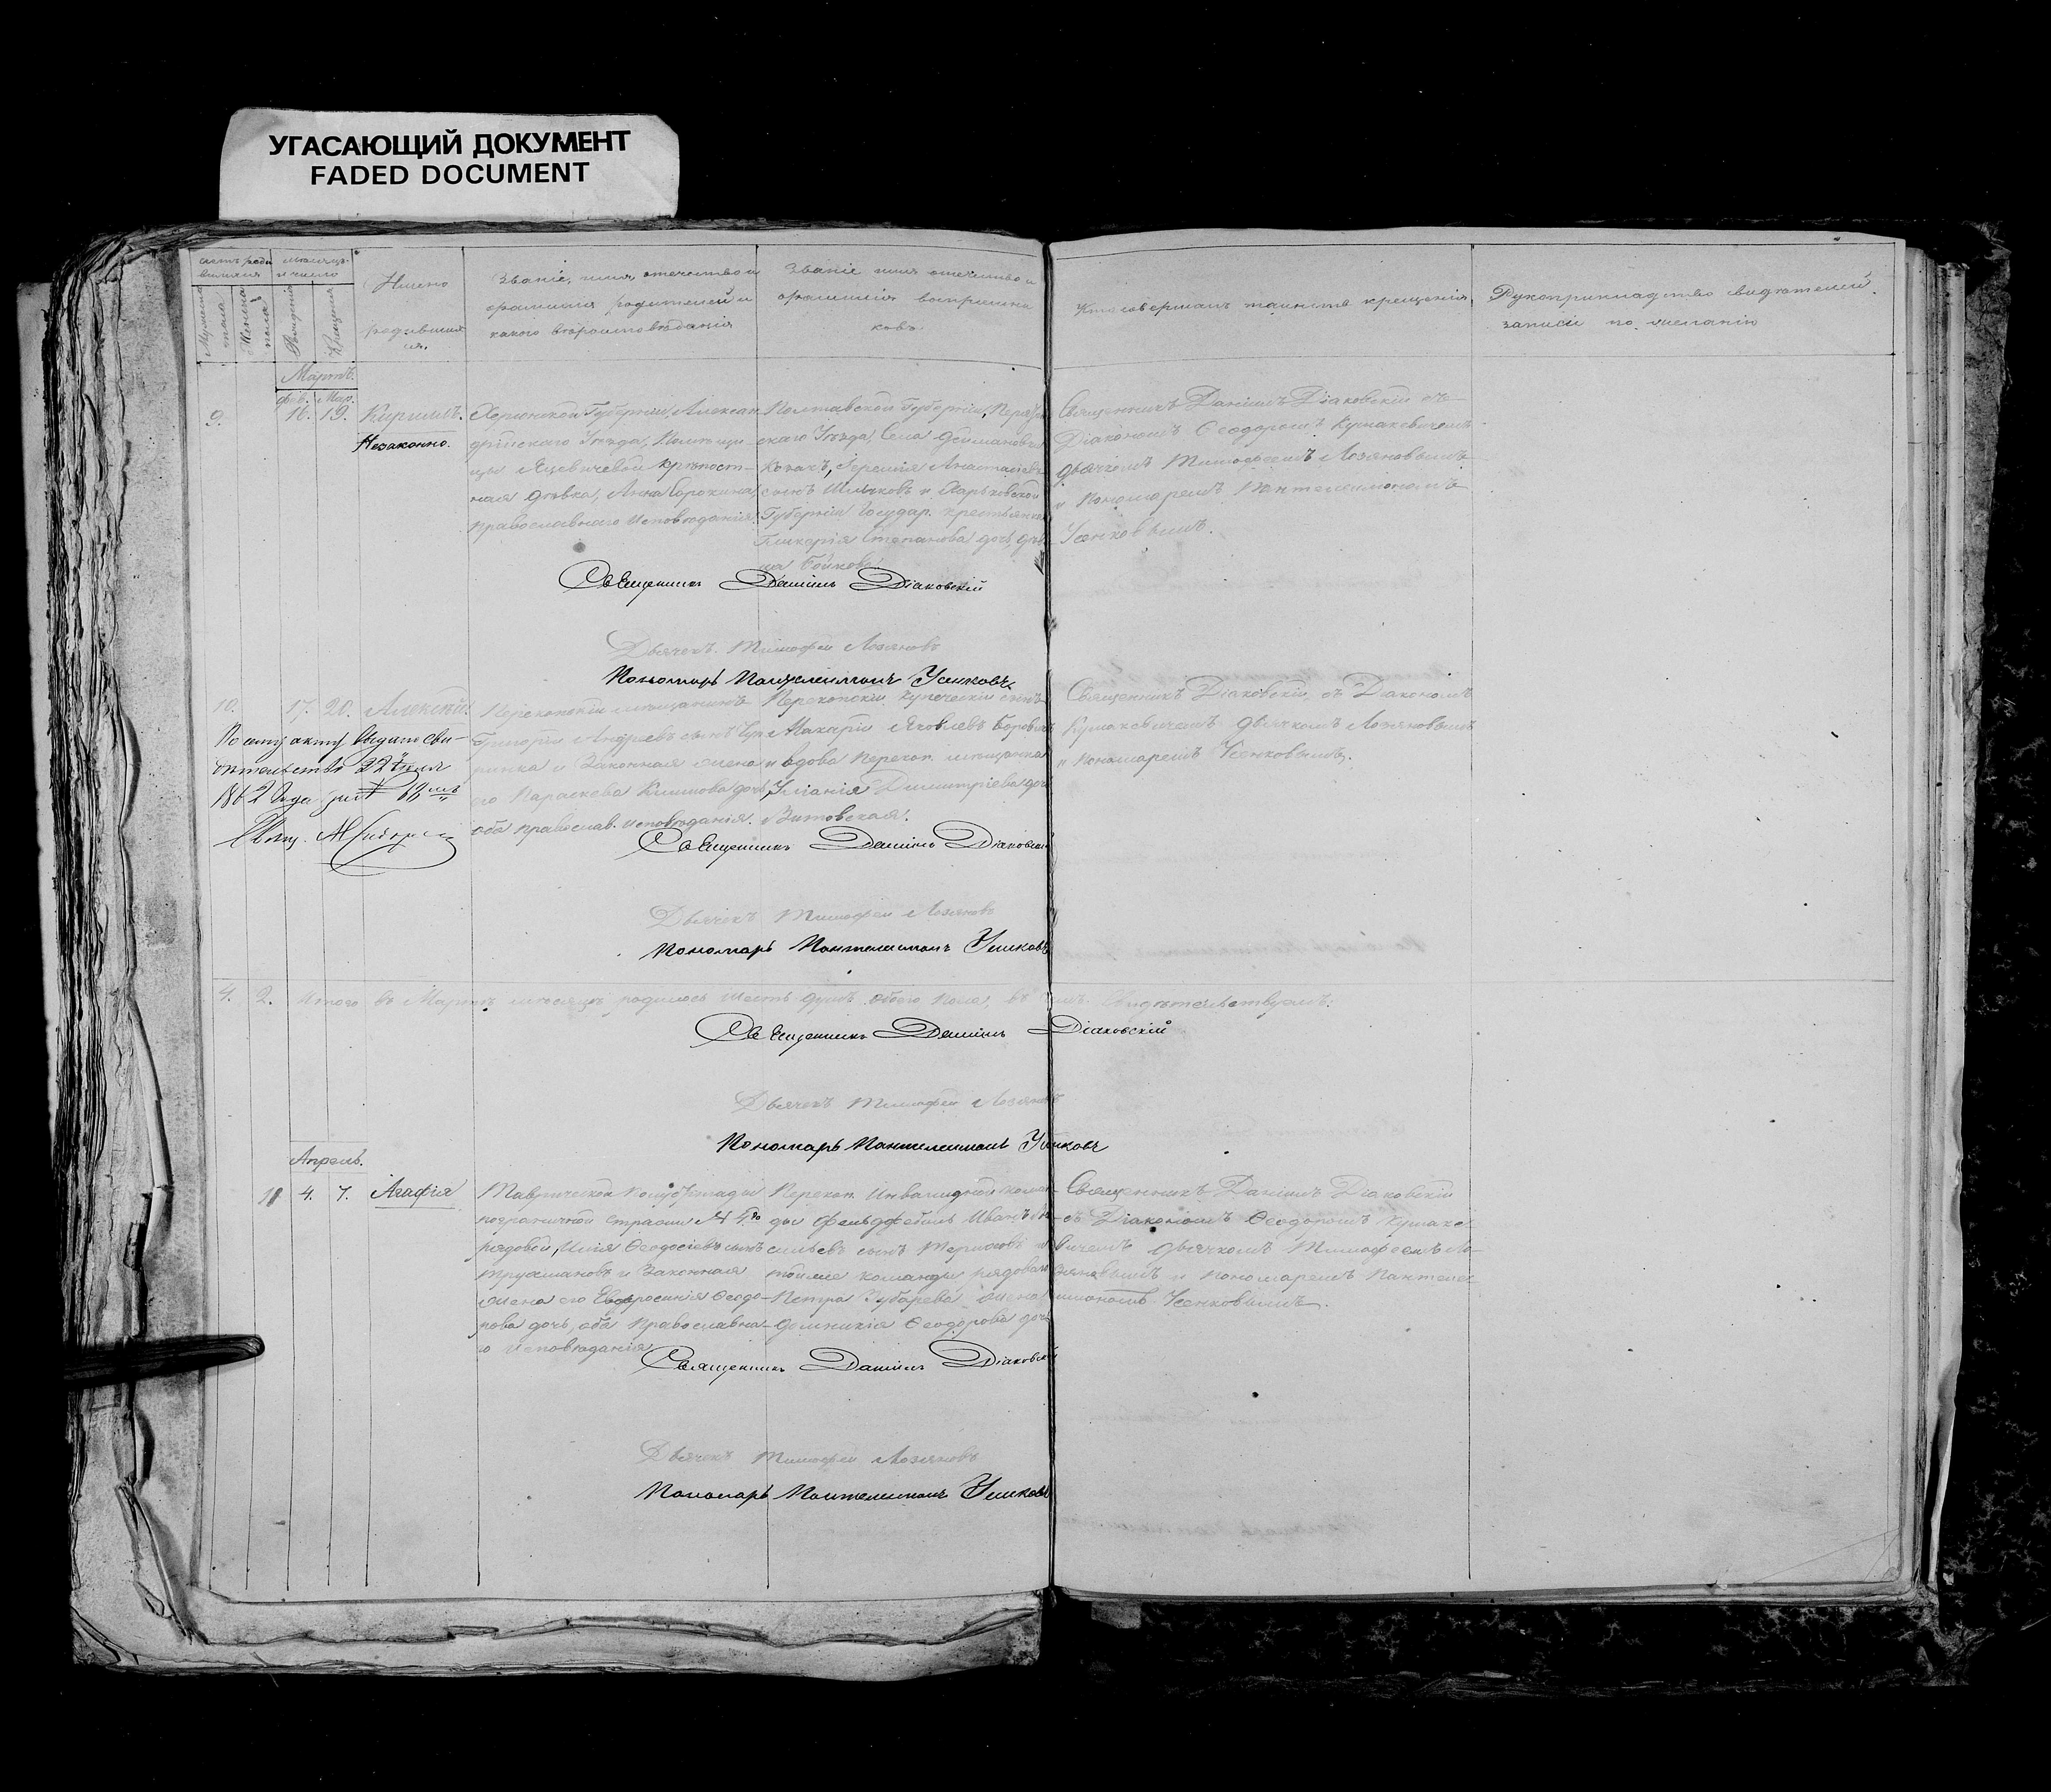 УГАСАЮЩИЙ ДОКУМЕНТ
FADED DOCUMENT
Счетъ роди
вшихся
Мужеска
пола
Женска
пола
Мѣсяцъ
и число
Рожденія
Крещенія
Имено
родившия
ся.
Званіе, имя отечество и
фамилия родителей и
какого вѣроисповѣданія
Званіе имя отечество и
фамиліа воспріемни
ковъ.
Кто совершалъ таинство крещенія
Рукоприкладство свидѣтелей
записи по желанію
Мартъ.
Фев. Мар.
9. 16. 19. Кириллъ.
Незаконно.
Херсонской Губерніи, Алексан
дрійскаго Уѣзда, Помѣщи-
цы Яцевичевой крѣпост-
ная дѣвка, Анна Сорокина,
православнаго исповѣданія.
Полтавской Губерніи,
скаго Уѣзда, Села
Козакъ,
сынъ и Харьковской
Губерніи Государ. крестьянка
Гликерія Степанова дочь, дѣв
ца Бойкова
Священникъ Даніилъ Діаковскій съ
Діакономъ Ѳеодоромъ Кушакевичемъ
дьячкомъ Тимофеемъ Лозяновымъ
и Пономаремъ Пантелеимономъ
Усенковымъ.
Священникъ Даніилъ Діаковскій
Дьячекъ Тимофей Лозяновъ
Пономарь Пантелеимонъ Усенковъ
10. 17. 20. Алексѣй.
По сему акту выдано сви-
дѣтельство 22 Іюля
1862 года
Перекопскій мѣщанинъ
Григорій Андреевъ сынъ Чу
ринка и Законная жена
его Параскева Климова дочь,
оба православ. исповѣданія.
Перекопскій купеческій сынъ
Макарій Яковлевъ
и вдова Перекоп. мѣщанка
Уліанія Димитріева доч
Витовская.
Священникъ Діаковскій съ Діакономъ
Кушакевичемъ дьячкомъ Лозяновымъ
и Пономаремъ Усенковымъ.
Священникъ Даніилъ Діаковскій
Дьячекъ Тимофей Лозяновъ
Пономарь Пантелеимонъ Усенковъ
4. 2. Итого въ Мартѣ мѣсяцѣ родилось шесть душъ обоего пола, въ чемъ свидѣтельствуемъ:
Священникъ Даніилъ Діаковскій
Дьячекъ Тимофей Лозяновъ
Пономарь Пантелеимонъ Усенковъ
Апрель.
11 4. 7. Агафія
Таврической
пограничной стражи № 4.го
рядовой, Илія Ѳеодосіевъ сынъ
Трухмановъ и Законная
жена его Евфросинія Ѳеодо-
рова дочь, оба Православна-
го исповѣданія
Перекоп. Инвалидной коман-
ды Фельдфебель Иванъ Ва-
сильевъ сынъ и
тойже команды рядоваго
Петра Зубарева жена
Домникія Ѳеодорова дочь
Священникъ Даніилъ Діаковскій
съ Діакономъ Ѳеодоромъ Кушаке-
вичемъ дьячкомъ Тимофеемъ Ло-
зяновымъ и пономаремъ Пантеле-
имономъ Усенковымъ.
Священникъ Даніилъ Діаковскій
Дьячекъ Тимофей Лозяновъ
Пономарь Пантелеимонъ Усенковъ